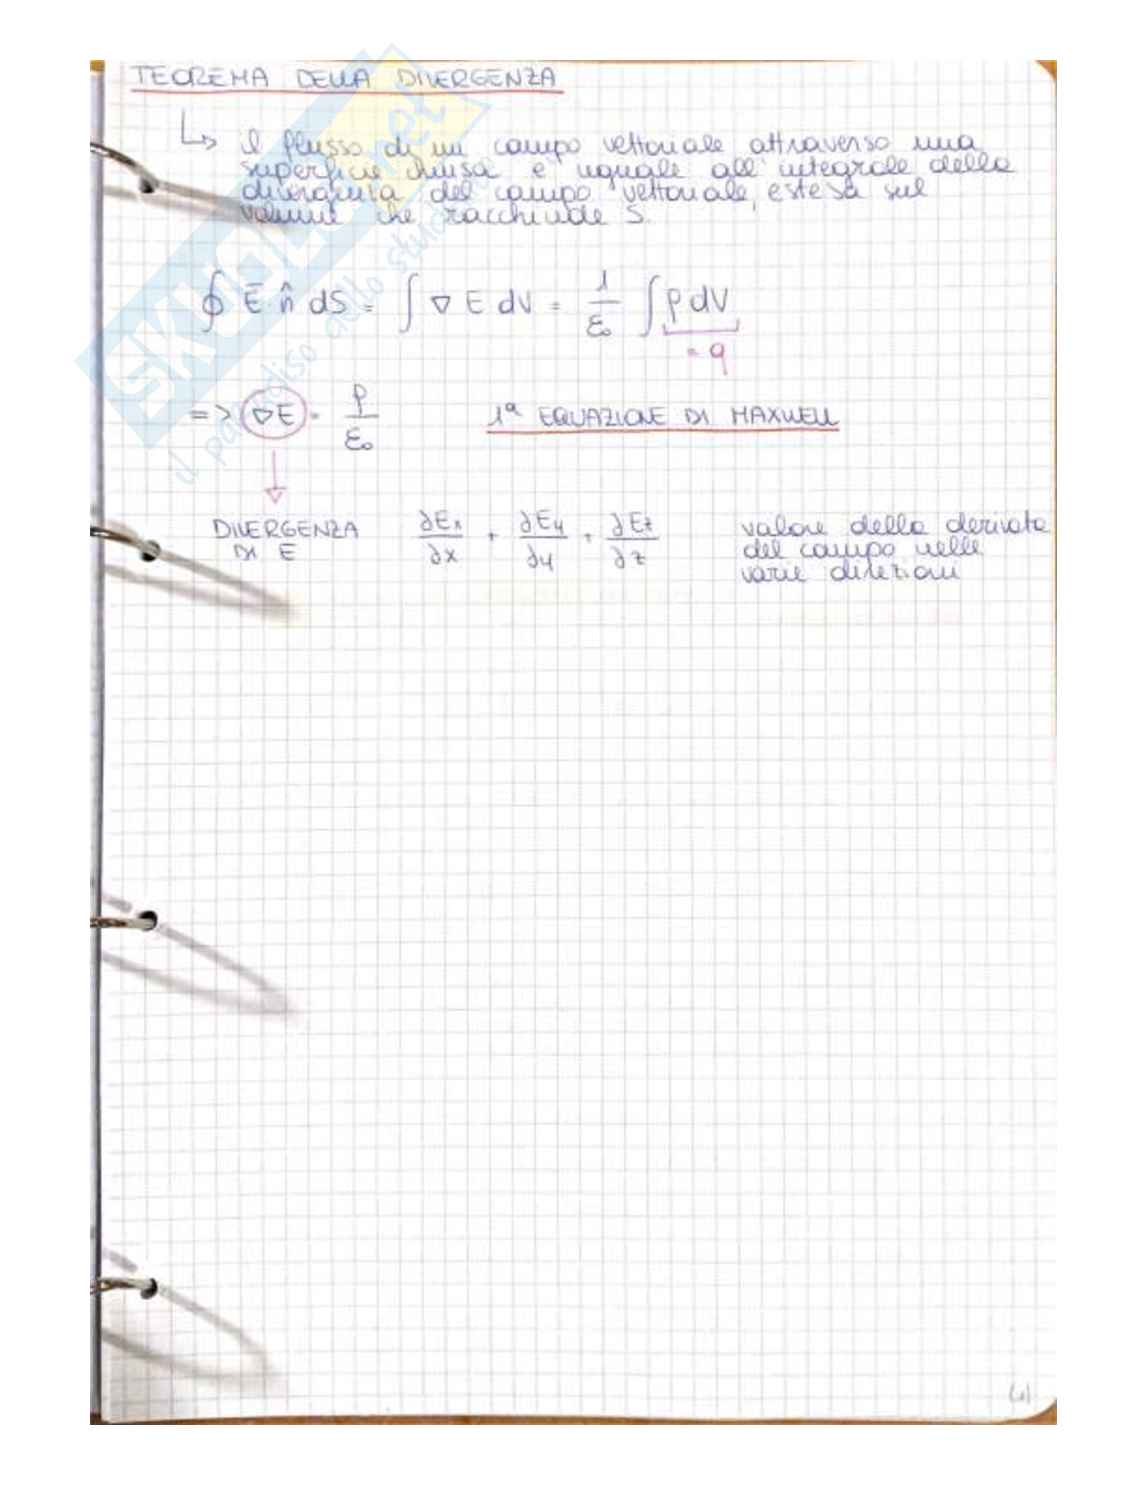 TEOREMA DELLA DIVERGENZA
↳ il flusso di un campo vettoriale attraverso una
superficie chiusa è uguale all'integrale della
divergenza del campo vettoriale, estesa sul
volume che racchiude S.
∮ E · n̂ dS = ∫ ∇ E dV = 1/ε₀ ∫ ρ dV
= q
=> ∇E = ρ/ε₀ 1ª EQUAZIONE DI MAXWELL
DIVERGENZA DI E
∂Ex/∂x + ∂Ey/∂y + ∂Ez/∂z
valore della derivata
del campo nelle
varie direzioni
SKUOLA.net
il paradiso dello studente